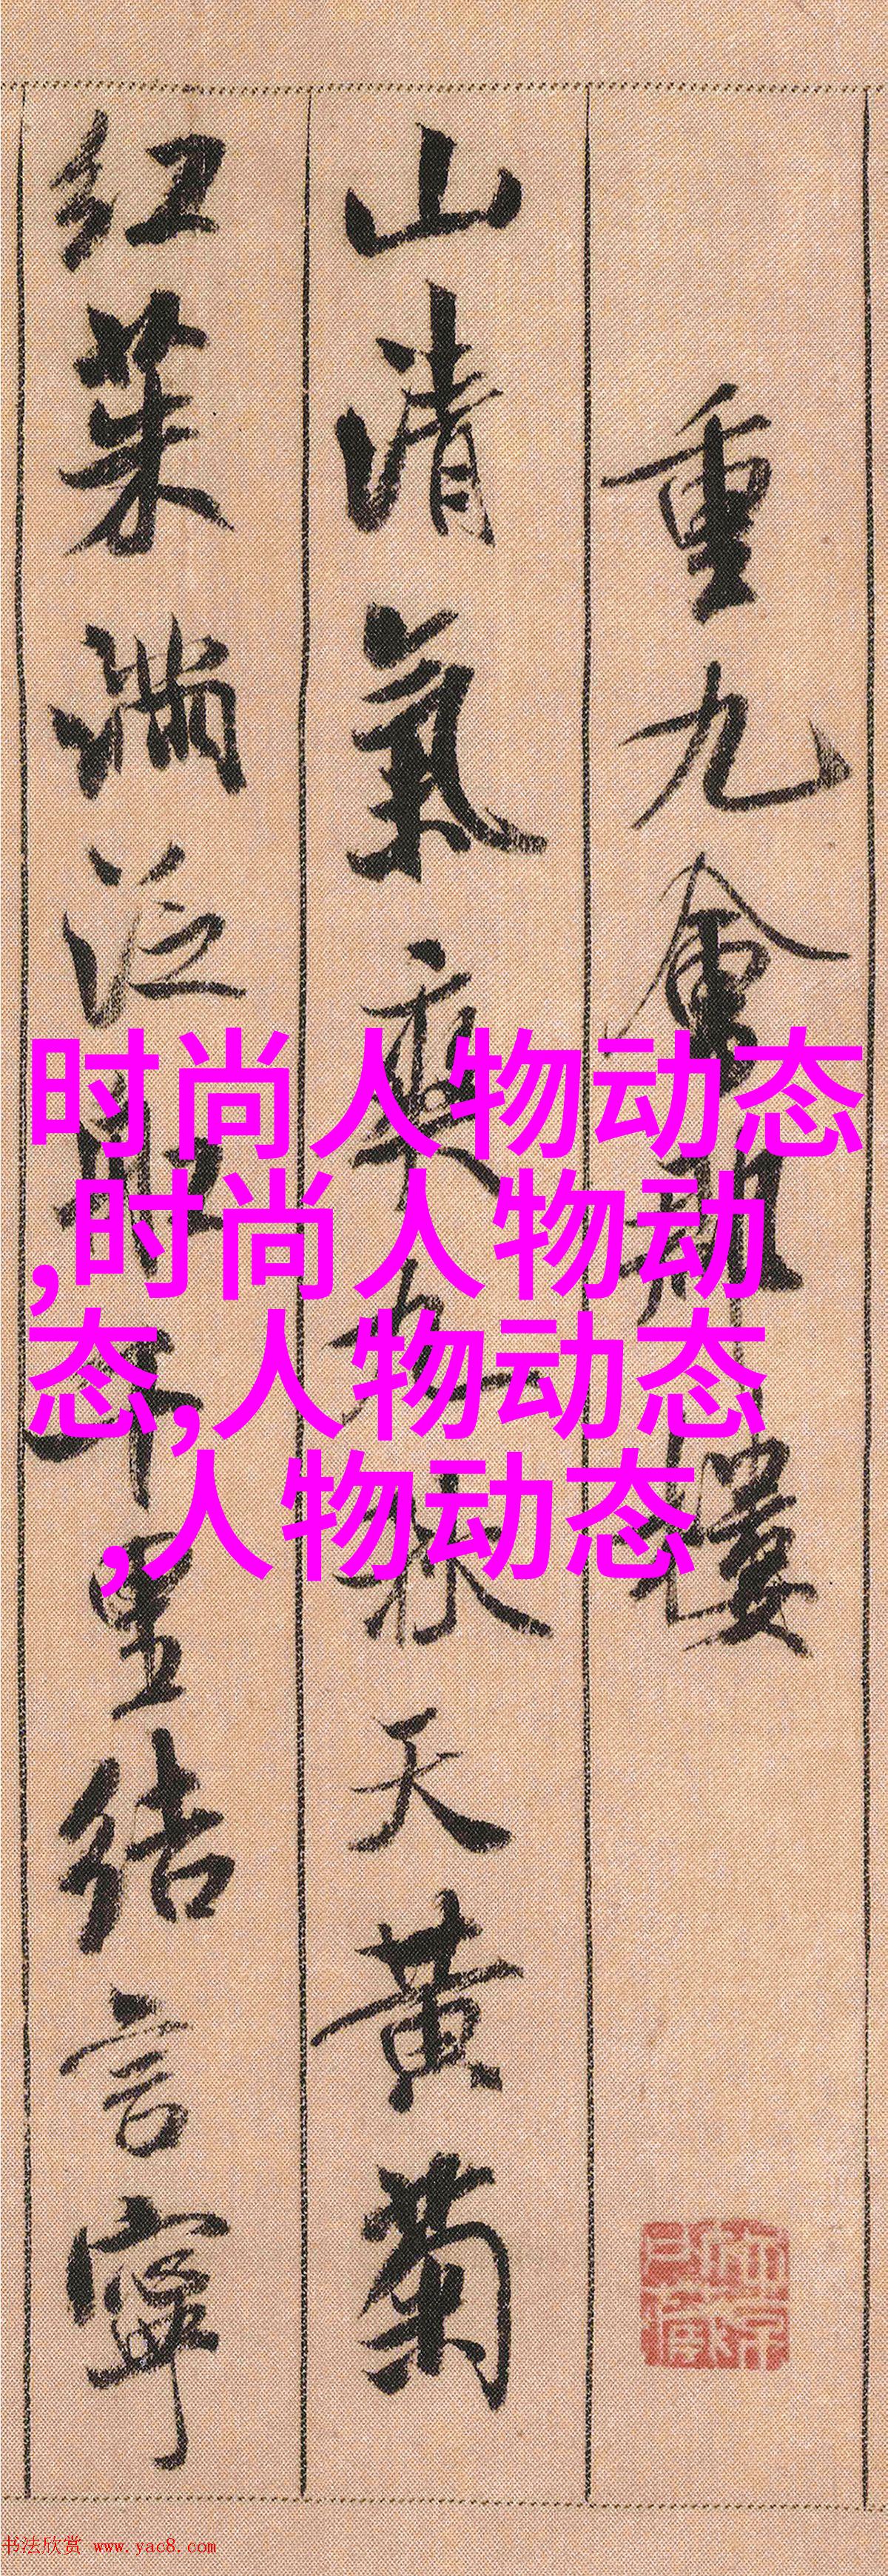 重九會郡樓
山清氣爽九秋天黃菊
紅茱滿泛舡千里結言寧
时尚人物动态
,时尚人物动
态,人物动态
,人物动态
书法欣赏 www.yac8.com